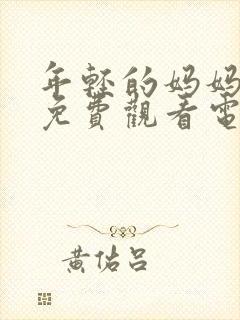 年轻的妈妈
免費觀看電
黃佑呂